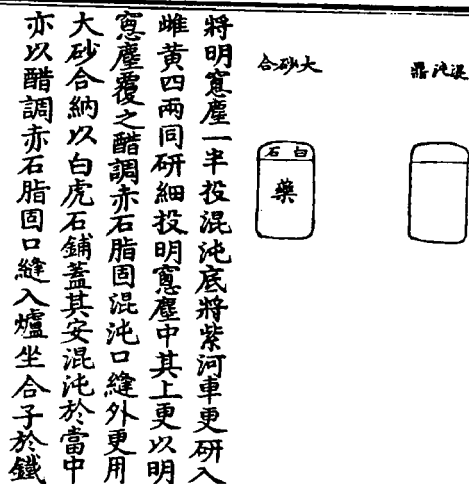 混沌鼎
大砂合
白石
藥
將明窻塵一半投混沌底將紫河車更研入
雌黄四兩同研細投明窻塵中其上更以明
窻塵覆之醋調赤石脂固混沌口縫外更用
大砂合納以白虎石鋪蓋其安混沌於當中
亦以醋調赤石脂固口縫入爐坐合子於鐵